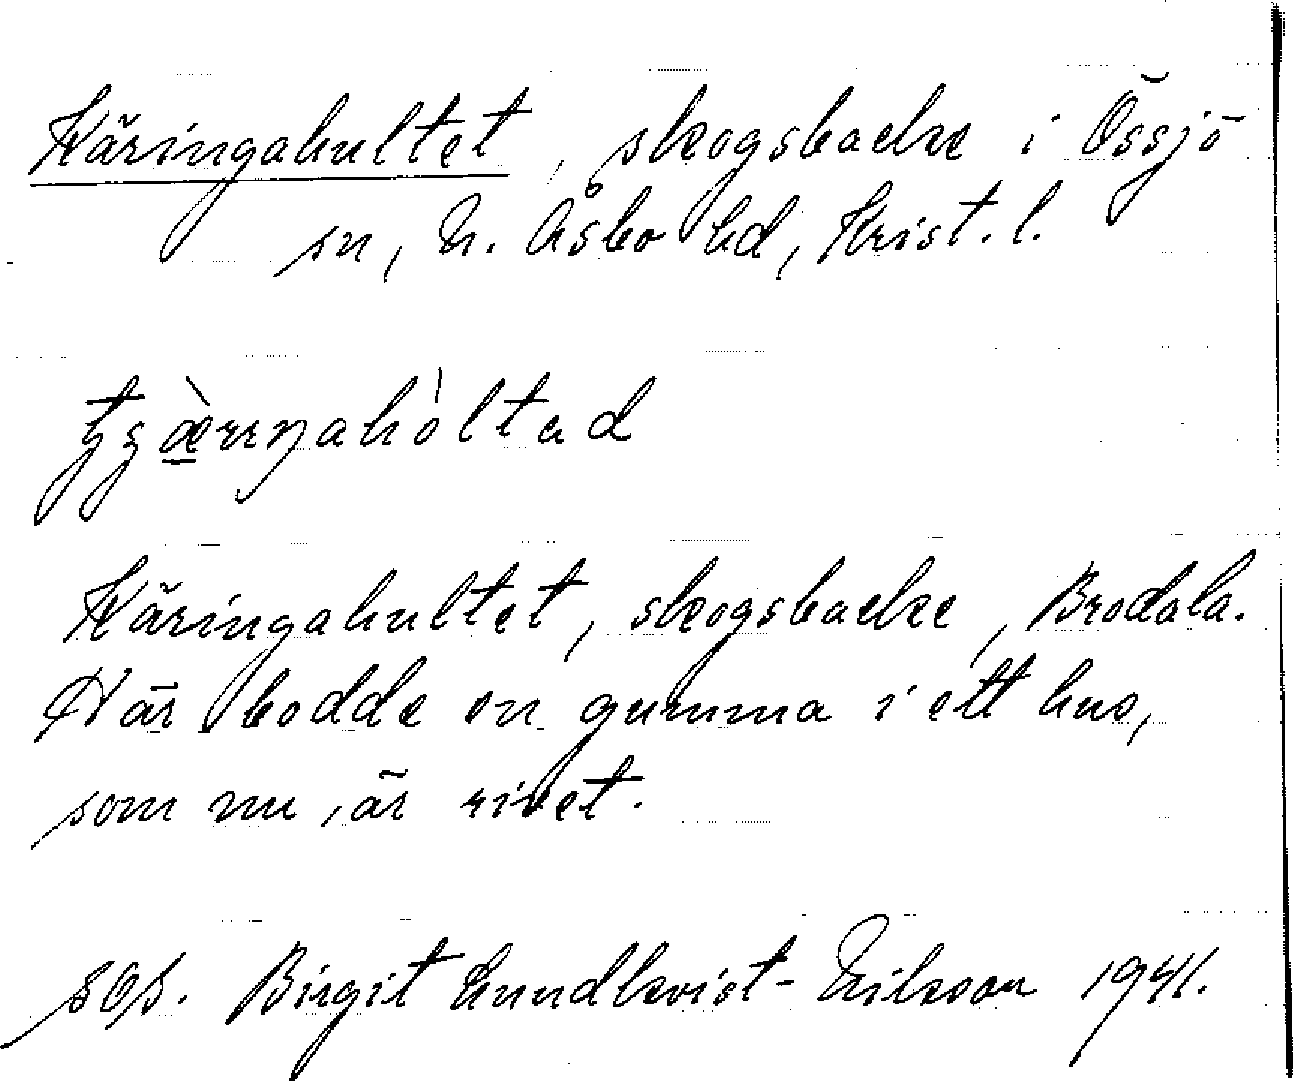 Käringahultet, skogsbacke i Össjö
sn, N. Åsbo hd, Krist. l.
Käringahultet, skogsbacke, Brodala.
Här bodde en gumma i ett hus,
som nu är rivet.
sys. Birgit Lundkvist-Nilsson 1941.